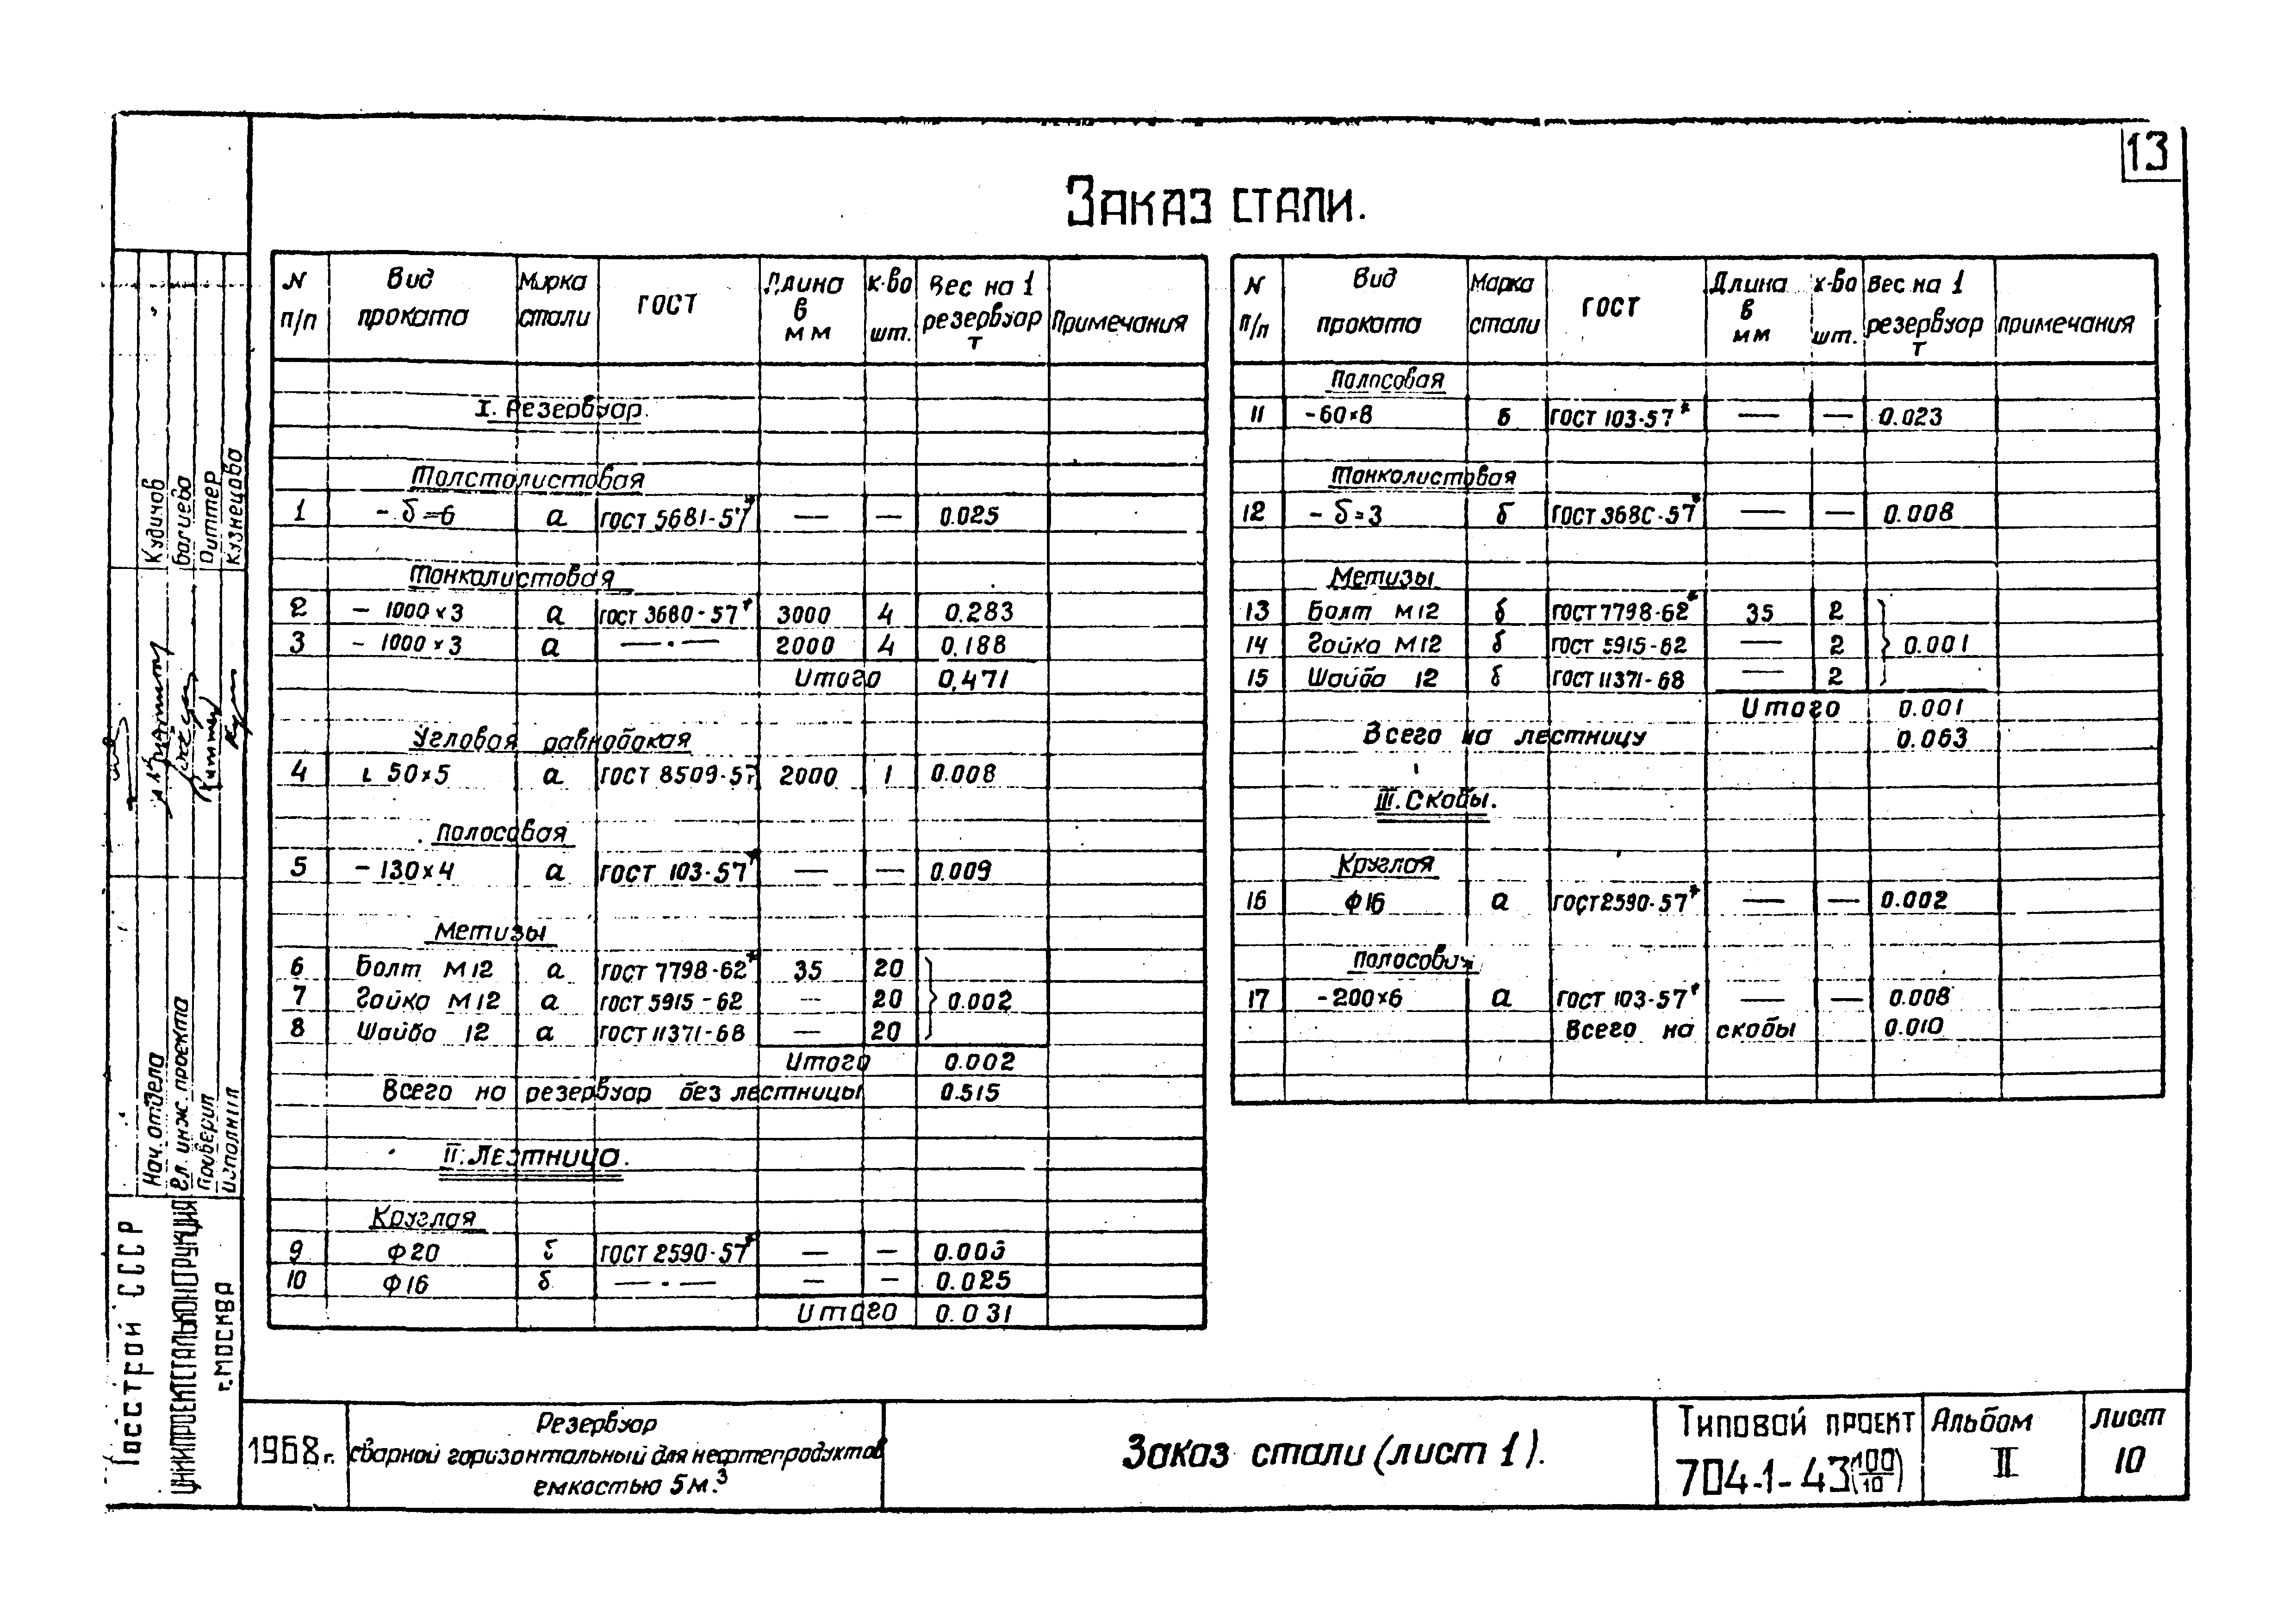 13
Заказ стали.
N п/п | Вид проката | Марка стали | ГОСТ | Длина в мм | к-во шт. | Вес на 1 резервуар т | Примечания
I. Резервуар.
Толстолистовая
1 | - δ=6 | а | ГОСТ 5681-57* | — | — | 0.025
Тонколистовая
2 | - 1000×3 | а | ГОСТ 3680-57* | 3000 | 4 | 0.283
3 | - 1000×3 | а | —·— | 2000 | 4 | 0.188
Итого 0,471
Угловая равнобокая
4 | L 50×5 | а | ГОСТ 8509-57 | 2000 | 1 | 0.008
Полосовая
5 | - 130×4 | а | ГОСТ 103-57* | — | — | 0.009
Метизы
6 | Болт М12 | а | ГОСТ 7798-62* | 35 | 20
7 | Гайка М12 | а | ГОСТ 5915-62 | — | 20 | } 0.002
8 | Шайба 12 | а | ГОСТ 11371-68 | — | 20
Итого 0.002
Всего на резервуар без лестницы 0.515
II. Лестница.
Круглая
9 | Ф20 | б | ГОСТ 2590-57* | — | — | 0.006
10 | Ф16 | б | —·— | — | — | 0.025
Итого 0.031
N п/п | Вид проката | Марка стали | ГОСТ | Длина в мм | к-во шт. | Вес на 1 резервуар т | примечания
Полосовая
11 | -60×8 | б | ГОСТ 103-57* | — | — | 0.023
Тонколистовая
12 | - δ=3 | б | ГОСТ 3680-57* | — | — | 0.008
Метизы
13 | Болт М12 | б | ГОСТ 7798-62* | 35 | 2
14 | Гайка М12 | б | ГОСТ 5915-62 | — | 2 | } 0.001
15 | Шайба 12 | б | ГОСТ 11371-68 | — | 2
Итого 0.001
Всего на лестницу 0.063
III. Скобы.
Круглая
16 | Ф16 | а | ГОСТ 2590-57* | — | — | 0.002
Полосовая
17 | -200×6 | а | ГОСТ 103-57* | — | — | 0.008
Всего на скобы 0.010
Нач. отдела Кудинов
Гл. инж. проекта
Проверил Риттер
Исполнил Кузнецова
Госстрой СССР
ЦНИИПРОЕКТСТАЛЬКОНСТРУКЦИЯ
г. Москва
1968 г.
Резервуар
сварной горизонтальный для нефтепродуктов
емкостью 5 м.³
Заказ стали (лист 1).
Типовой проект
704-1-43 (100/10)
Альбом
II
Лист
10